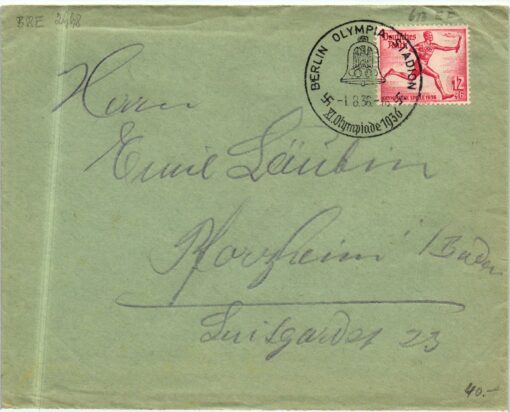 BRE 2448
BERLIN OLYMPIA STADION
-1.8.36.-16
XI. Olympiade 1936
Deutsches
Reich
12
Herrn
Emil Läubin
Pforzheim / Baden
Luisgardst 23
40.-